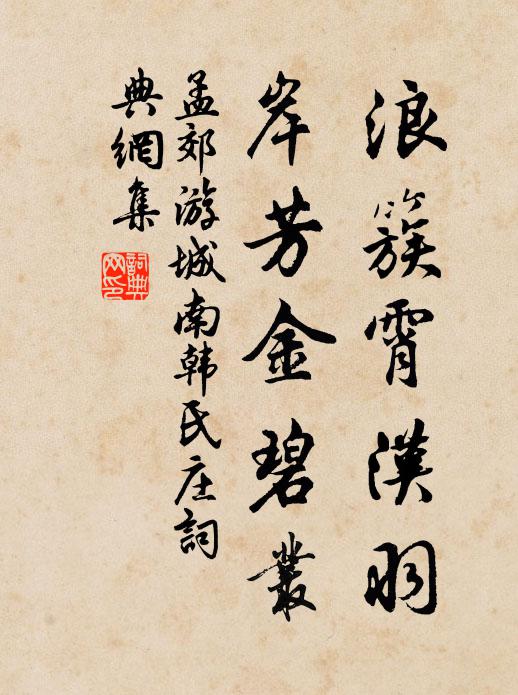 浪簇霄漢羽
岸芳金碧叢
孟郊游城南韩氏庄詞
典網集
詞典網印